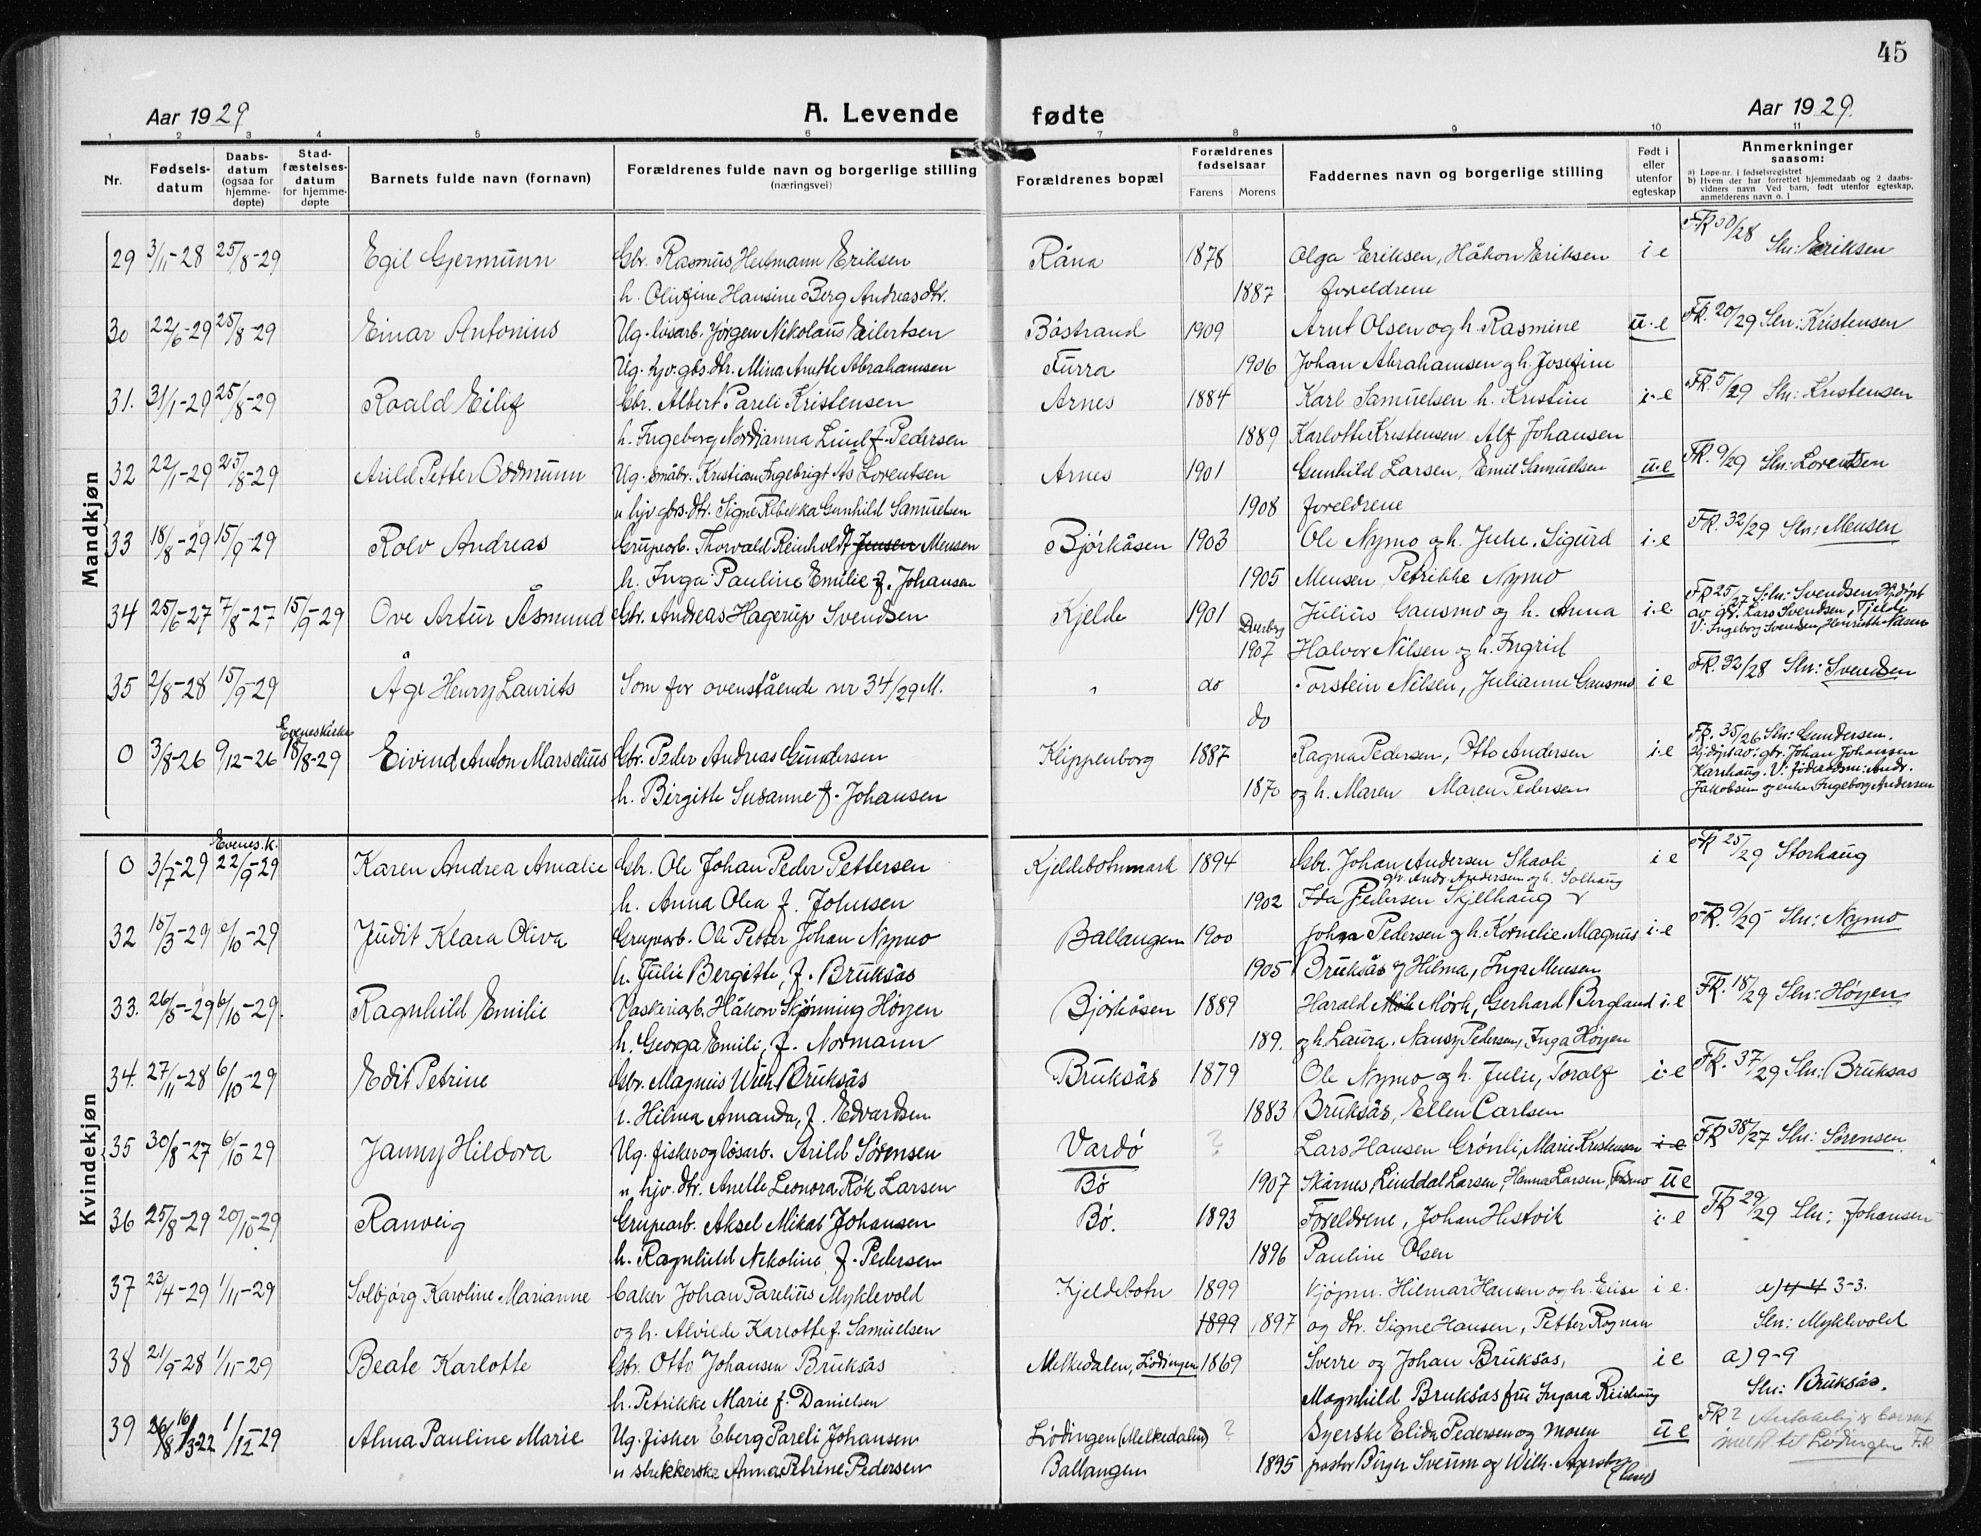 45
Aar 1929 A. Levende fødte Aar 1929.
1 2 3 4 5 6 7 8 9 10 11
Nr.
Fødsels-
datum
Daabs-
datum
(ogsaa for
hjemme-
døpte)
Stad-
fæstelses-
datum
for hjemme-
døpte
Barnets fulde navn (fornavn)
Forældrenes fulde navn og borgerlige stilling
(næringsvei)
Forældrenes bopæl
Forældrenes
fødselsaar
Farens Morens
Faddernes navn og borgerlige stilling
Født i
eller
utenfor
egteskap
Anmerkninger
saasom:
a) Løpe-nr. i fødselsregistret
b) Hvem der har forrettet hjemmedaab og 2 daabs-
vidners navn Ved barn, født utenfor egteskap,
anmelderens navn o. l
Mandkjøn
29 3/11-28 25/8-29 Egil Gjermunn Gbr. Rasmus Heitmann Eriksen Råna 1878 Olga Eriksen, Håkon Eriksen i e FR 30/28 Sln: Eriksen
h. Olufine Hansine Berg Andreasdtr. 1887 foreldrene
30 22/6-29 25/8-29 Einar Antonius Ug. løsarb. Jørgen Nikolaus Eilertsen Bøstrand 1909 Arnt Olsen og h. Rasmine u.e FR. 20/29 Sln: Kristensen
Ug. hjv. gbs. dtr. Mina Anette Abrahamsen Furra 1906 Johan Abrahamsen og h. Josefine
31. 31/1-29 25/8-29 Roald Eilif Gbr. Albert Pareli Kristensen Arnes 1884 Karl Samuelsen h. Kristine i.e FR. 5/29 Sln: Kristensen
h. Ingeborg Nordianna Lund f. Pedersen 1889 Karlotte Kristensen Alf Johansen
32 22/1-29 25/8-29 Arild Petter Oddmunn Ug. småbr. Kristian Ingebrigt Lorentsen Arnes 1901 Gunhild Larsen, Emil Samuelsen u.e FR. 9/29 Sln: Lorentsen
u hjv gbrs. dtr. Signe Rebekka Gunhild Samuelsen 1908 foreldrene
33 18/8-29 15/9-29 Rolv Andreas Grupearb. Thorvald Reinholdt Jensen Mensen Bjørkåsen 1903 Ole Nymo og h. Julie. Sigurd i.e FR. 32/29 Sln: Mensen
h. Inga Pauline Emilie f. Johansen 1905 Mensen Petrikke Nymo
34 25/6-27 7/8-27 15/9-29 Ove Artur Åsmund Gbr. Andreas Hagerup Svendsen Kjelde 1901 Julius Gausmo og h. Anna i.e FR 25/27 Sln: Svendsen Hjdøpt
av gbr. Lars Svendsen, Tjelde
V: Ingeborg Svendsen, Henriette Nilsen
1907 Halvor Nilsen og h. Ingrid
35 2/8-28 15/9-29 Åge Henry Laurits Som for ovenstående nr 34/29 M. " do Torstein Nilsen, Julianne Gausmo i e FR. 32/28 Sln: Svendsen
do
Eveneskirke
0 3/8-26 9/12-26 18/8-29 Eivind Anton Marselius Gbr. Peder Andreas Gundersen Klippenborg 1887 Ragna Pedersen, Otto Andersen i.e FR. 35/26 Sln: Gundersen.
Hjdøpt av: gbr. Johan Johansen
Karshaug. V: føderådsm: Andr.
Jakobsen og enke Ingeborg Andersen
h. Birgitte Susanne f. Johansen 1870 og h. Maren Maren Pedersen
Kvindekjøn
Evenes k.
0 3/7-29 22/9-29 Karen Andrea Amalie Gbr. Ole Johan Peder Pettersen Kjeldebotnmark 1894 Gbr. Johan Andersen Skavli i e FR 25/29 Storhaug
gbr. Andr. Andersen og h. Solhaug
h. Anna Olea f. Johnsen 1902 Ida Pedersen Skjelhaug
32 15/3-29 6/10-29 Judit Klara Oliva Grupearb. Ole Petter Johan Nymo Ballangen 1900 John Pedersen og h. Kornelie. Magnus i.e FR. 9/29 Sln: Nymo
h. Julie Bergitte, f. Bruksås 1905 Bruksås og Hilma, Inga Mensen
33. 26/5-29 6/10-29. Ragnhild Emilie Vaskeriarb. Håkon Skjønning Høyen Bjørkåsen 1889 Harald Mörk, Gerhard Bergland i e FR. 18/29 Sln: Høyen
h. Georga Emilie, f. Normann 189. og h. Laura. Nansy Pedersen, Inga Høyen
34. 27/11-28 6/10-29 Edit Petrine Gbr. Magnus Wilh. Bruksås Bruksås 1879 Ole Nymo og h. Julie, Toralf i.e FR. 37/29 Sln: Bruksas
h. Hilma Amanda, f. Edvardsen 1883 Bruksås, Ellen Carlsen
35 30/8-27 6/10-29 Janny Hildora Ug. fisker og løsarb. Arild Sörensen Vardö ? Lars Hansen Grønli, Marie Kristensen i e FR 38/27 Sln: Sørensen
u hjv. dtr. Anelle Leonora Rök Larsen Bö 1907 Skårnes, Linddal Larsen, Hanna Larsen, u e
36 25/8-29 20/10-29 Ranveig Grupearb. Aksel Mikal Johansen Bö. 1893 Foreldrene, Johan Hestvik i.e FR 29/29 Sln: Johansen
h. Ragnhild Nikoline f. Pedersen 1896 Pauline Olsen
37 23/4-29 1/11-29 Solbjørg Karoline Marianne baker Johan Parelius Myklevold Kjeldebotn 1899 kjøpm. Hilmar Hansen og h. Elise i e. a) 4-4 3-3.
og h. Alvilde Karlotte f. Samuelsen 1899 1897 og dtr. Signe Hansen, Petter Rognan Sln: Myklevold
38 21/9-28 1/11-29 Beate Karlotte Gbr. Otto Johansen Bruksås Melkedalen, Lödingen 1869 Sverre og Johan Bruksås, i e a) 9-9
h. Petrikke Marie f. Danielsen Magnhild Bruksås fru Ingara Sln: Bruksås.
39 26/8 16/3-22 1/12-29 Alma Pauline Marie Ug. fisker Eberg Pareli Johansen Lödingen (Melkedalen) ? Syerske Elida Pedersen og moren u e FR ?
meldt til Lödingen FR
u strikkerske Anna Petrine Pedersen Ballangen 1895 pastor Birger Sveum og Wilh.